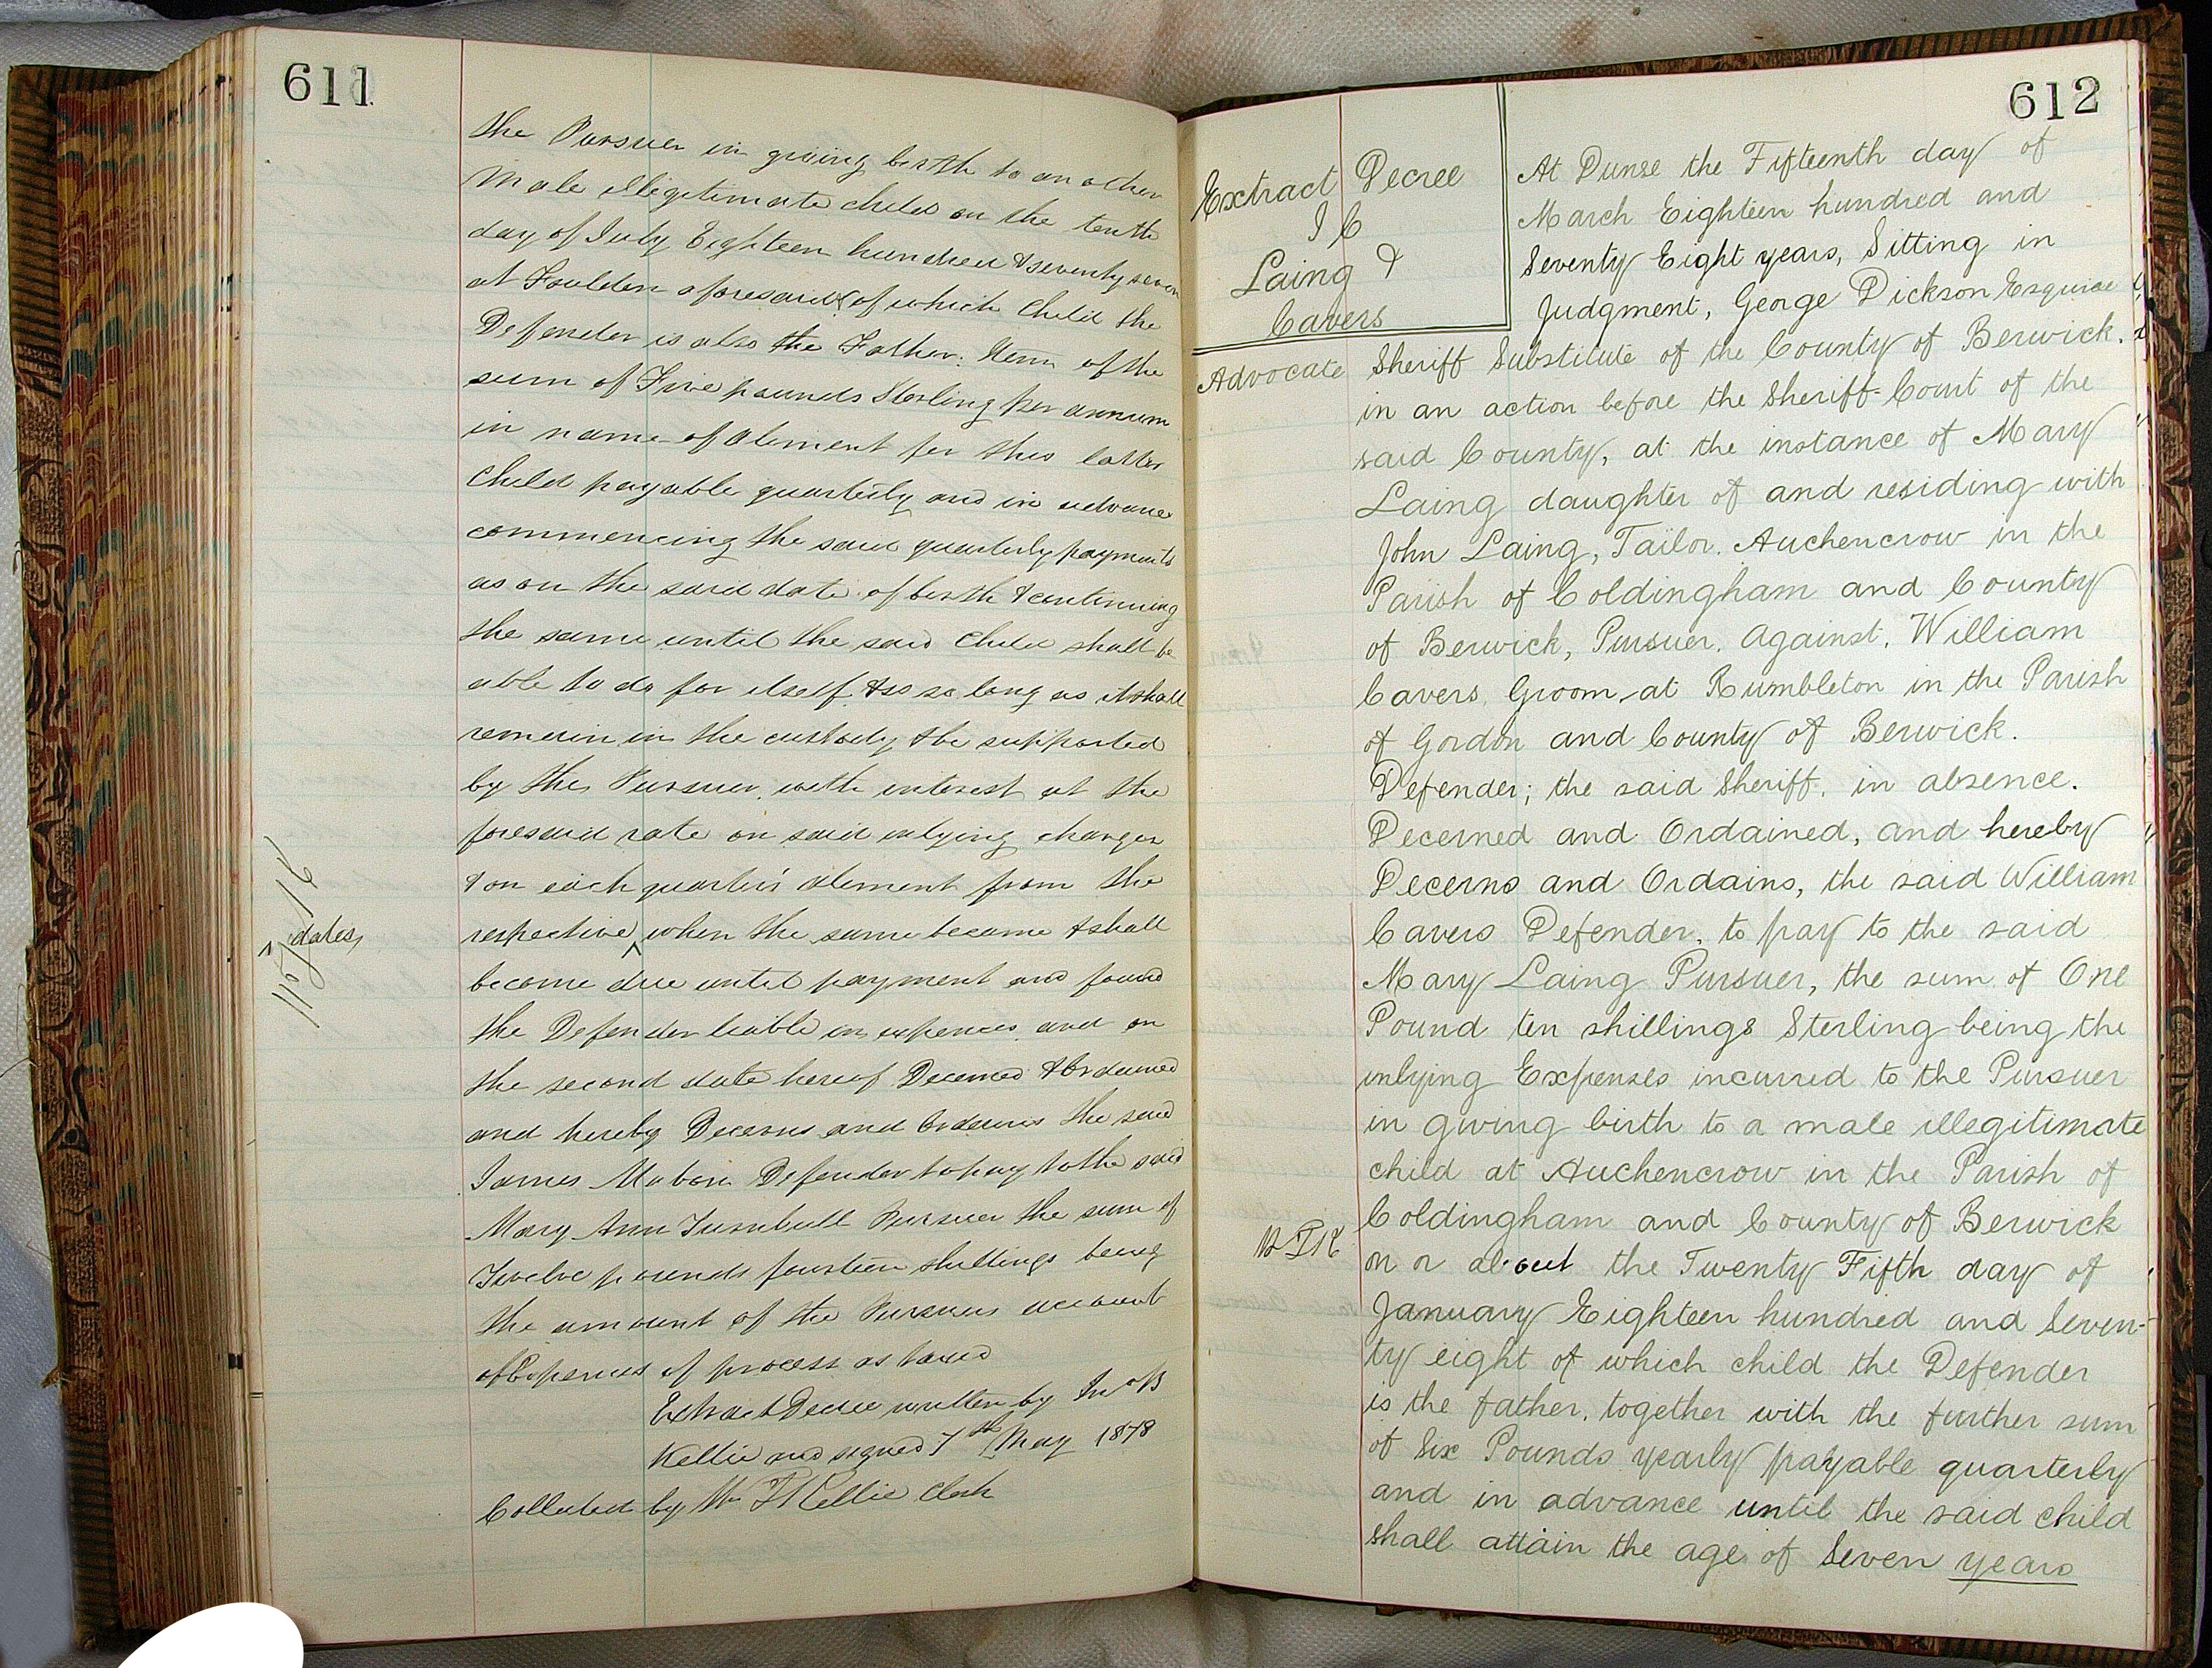 611
the Pursuer in giving birth to another
Male illegitimate child on the tenth
day of July Eighteen hundred & seventy seven
at Foulden aforesaid of which Child the
Defender is also the Father. Item of the
sum of Five pounds Sterling per annum
in name of aliment for this latter
Child payable quarterly and in advance
commencing the said quarterly payments
as on the said date of birth & continuing
the same until the said Child shall be
able to do for itself & so so long as it shall
remain in the custody & be supported
by the Pursuer, with interest at the
foresaid rate on said inlying charges
& on each quarter's aliment from the
respective ^ when the same became & shall
^ dates,
become due until payment and found
the Defender liable in expences and on
the second date hereof Decerned & Ordained
and hereby Decerns and Ordains the said
James Mabon Defender to pay to the said
Mary Ann Turnbull Pursuer the sum of
Twelve pounds fourteen shillings being
the amount of the Pursuers account
of Expences of process as taxed
Extract Decree written by
Kellie and signed 7th May 1878
Collated by Wm T Kellie Clerk
612
Extract Decree
I C
Laing &
Cavers
Advocate
At Dunse the Fifteenth day of
March Eighteen hundred and
Seventy Eight years, Sitting in
Judgment, George Dickson Esquire
Sheriff Substitute of the County of Berwick.
in an action before the Sheriff-Court of the
said County, at the instance of Mary
Laing daughter of and residing with
John Laing, Tailor, Auchencrow in the
Parish of Coldingham and County
of Berwick, Pursuer, Against, William
Cavers, Groom, at Rumbleton in the Parish
of Gordon and County of Berwick.
Defender; the said Sheriff, in absence.
Decerned and Ordained, and hereby
Decerns and Ordains, the said William
Cavers Defender, to pay to the said
Mary Laing Pursuer, the sum of One
Pound ten shillings Sterling being the
inlying Expenses incurred to the Pursuer
in giving birth to a male illegitimate
child at Auchencrow in the Parish of
Coldingham and County of Berwick
on or about the Twenty Fifth day of
January Eighteen hundred and Seven-
ty eight of which child the Defender
is the father, together with the further sum
of Six Pounds yearly payable quarterly
and in advance until the said child
shall attain the age of Seven years